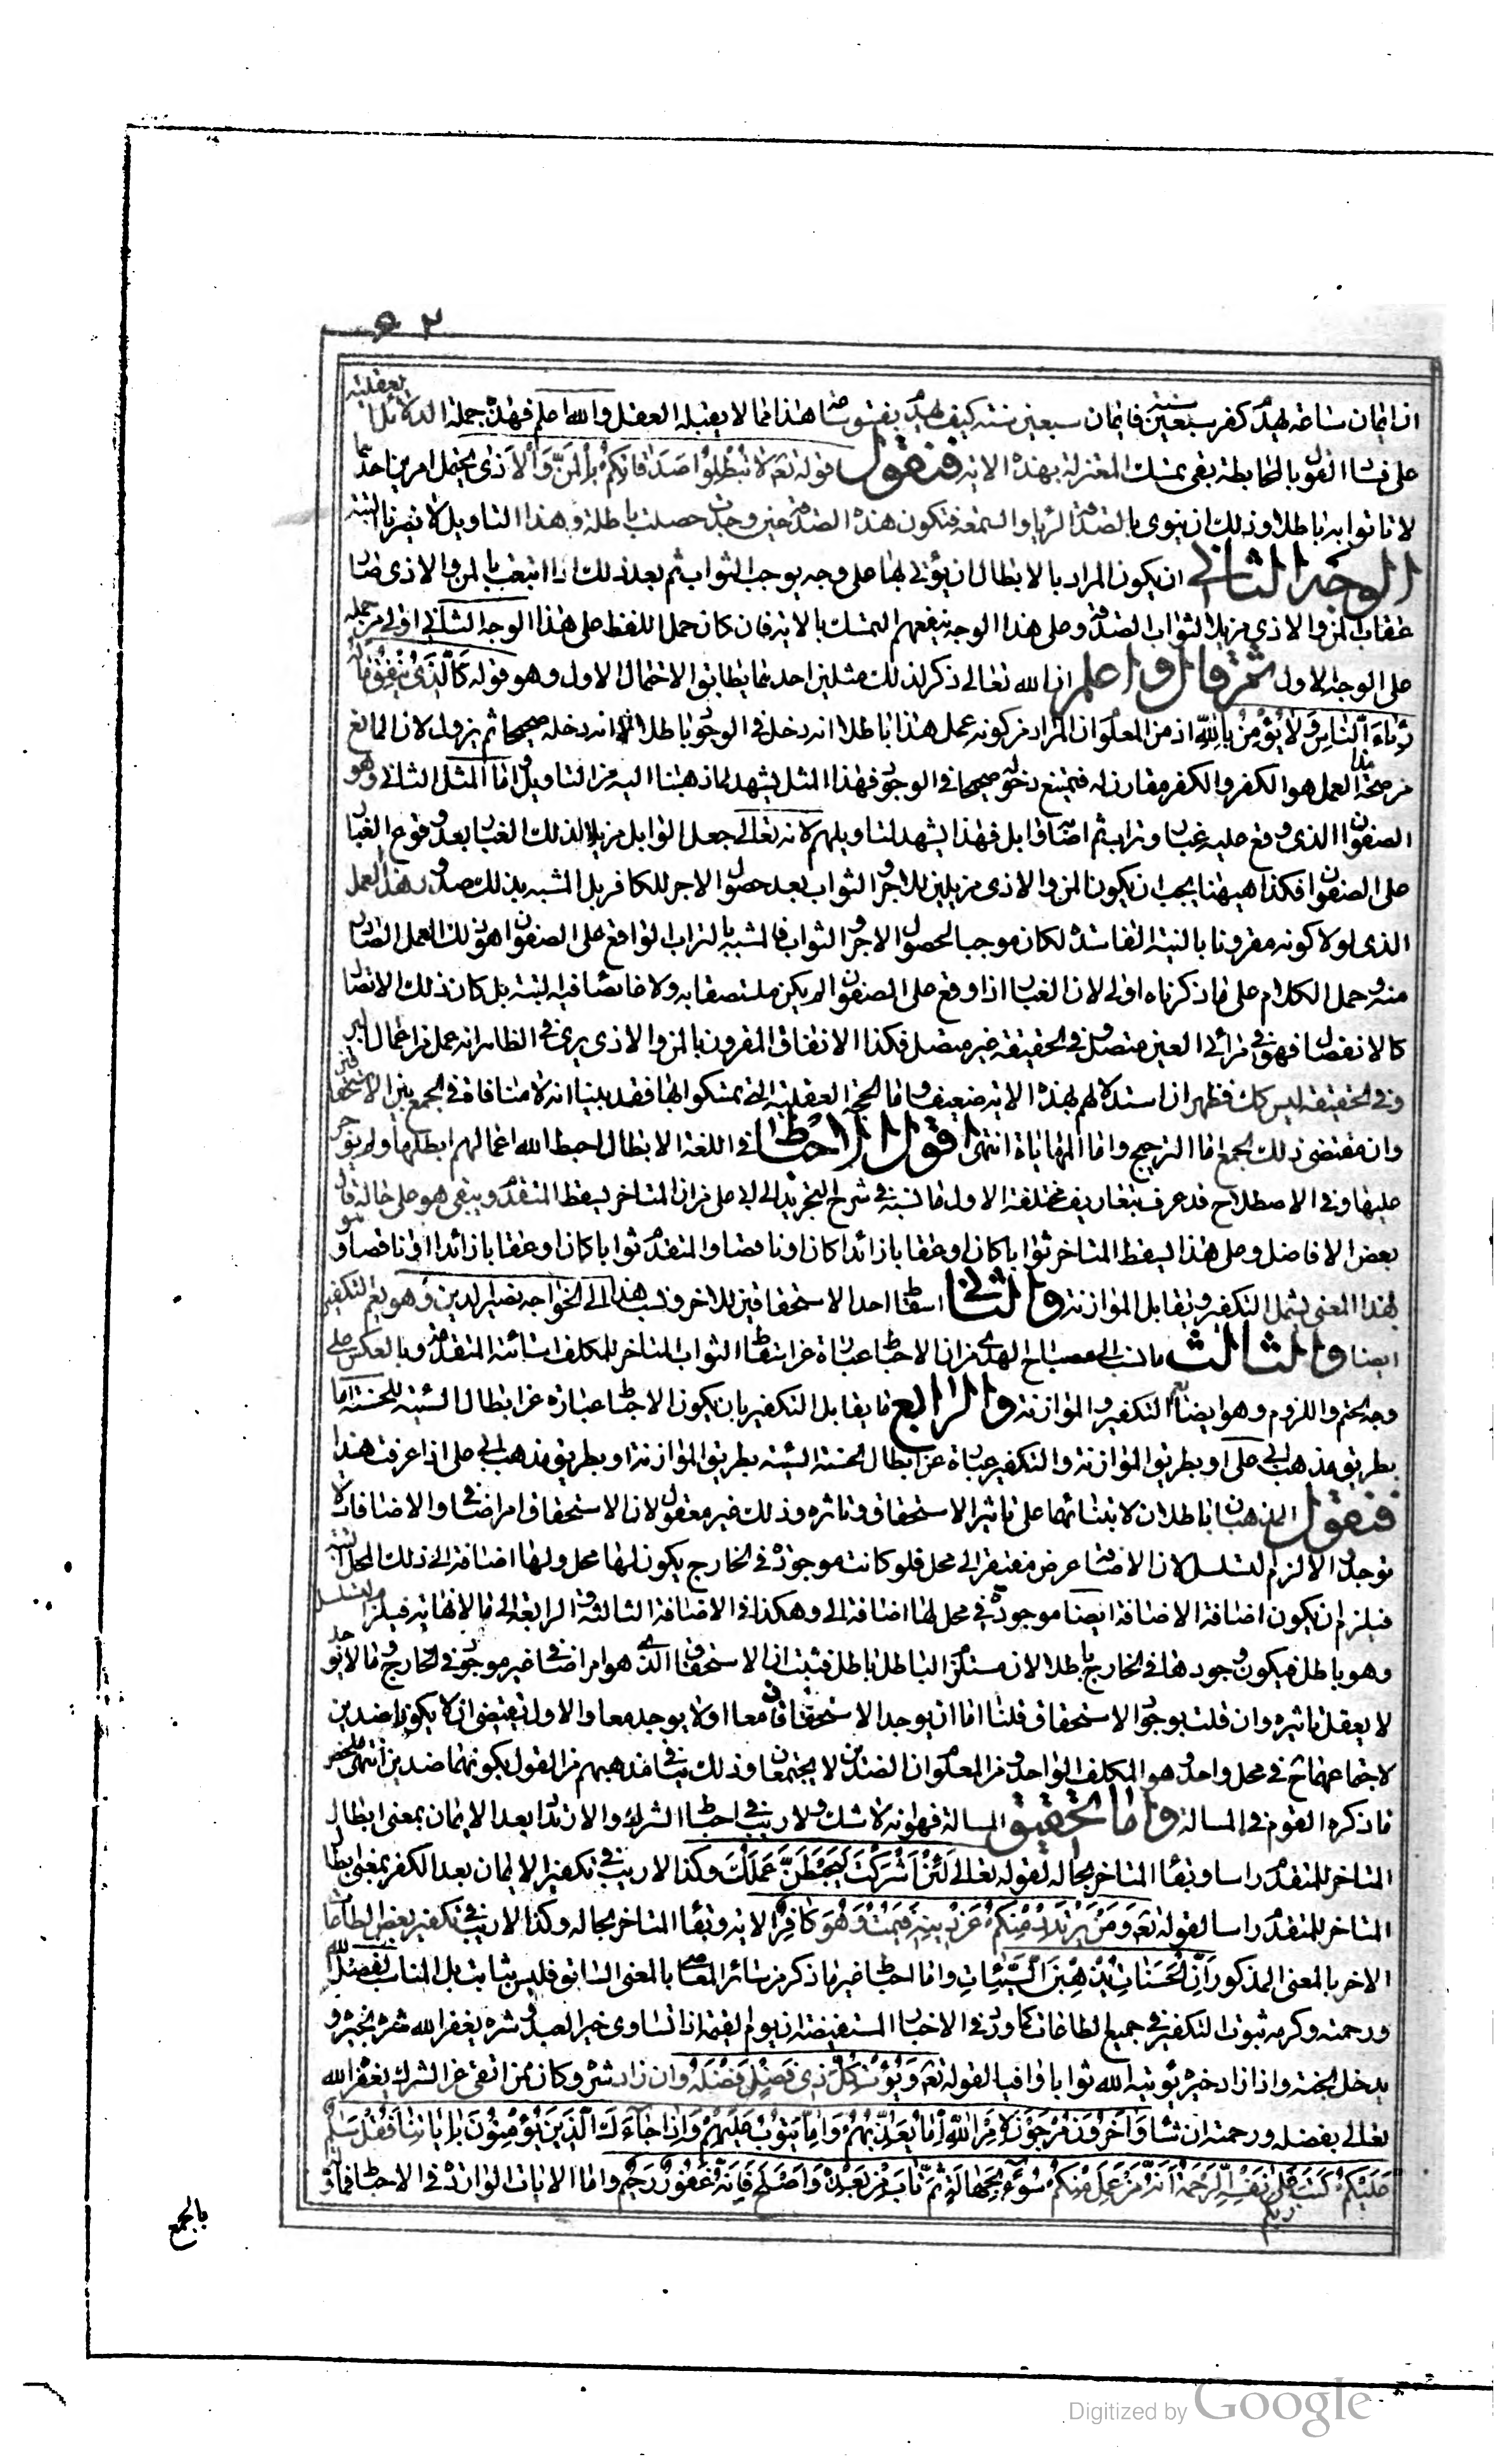 ٥٢
ان ايمان ساعة يهدم كفر سبعين سنة فايمان سبعين سنة كيف يهدم بفسق ساعة هذا مما لا يقبله العقل والله اعلم فهذه جملة الدلائل العقلية
على فساد القول بالمحابطة بقى تمسك المعتزلة بهذه الاية فنقول قوله تعم لا تُبْطِلُوا صَدَقاتِكُمْ بِالْمَنِّ وَالْأَذى يحتمل امرين احدهما
لا تاتوا به باطلا وذلك ان ينوى بالصدقة الريا والسمعة فتكون هذه الصدقة حين وجدت حصلت باطلة وهذا التاويل لا يضرنا البتة
الوجه الثاني ان يكون المراد بالابطال ان يؤتى بها على وجه يوجب الثواب ثم بعد ذلك اذا اتبعت بالمن والاذى صار
عقاب المن والاذى مزيلا لثواب الصدقة وعلى هذا الوجه ينفعهم التمسك بالاية فان كان حمل اللفظ على هذا الوجه الثانى اولى من حمله
على الوجه الاول ثم قال واعلم ان الله تعالى ذكر لذلك مثلين احدهما يطابق الاحتمال الاول وهو قوله كَالَّذِي يُنْفِقُ مالَهُ
رِئاءَ النَّاسِ وَلا يُؤْمِنُ بِاللَّهِ اذ من المعلوم ان المراد من كونه عمل هذا باطلا انه دخل فى الوجود باطلا لا انه دخله صحيحا ثم يزول لان المانع
من صحة هذا العمل هو الكفر والكفر مقارن له فيمتنع دخوله صحيحا فى الوجود فهذا المثل يشهد لما ذهبنا اليه من التاويل واما المثل الثانى وهو
الصفوان الذى وقع عليه غبار وتراب ثم اصابه وابل فهذا يشهد لتاويلهم لانه تعالى جعل الوابل مزيلا لذلك الغبار بعد وقوع الغبار
على الصفوان فكذا هيهنا يجب ان يكون المن والاذى مزيلين للاجر والثواب بعد حصول الاجر للكافر بل المشبه بذلك صدور هذا العمل
الذى لولا كونه مقرونا بالنية الفاسدة لكان موجبا لحصول الاجر والثواب فالمشبه بالتراب الواقع على الصفوان هو ذلك العمل الصادر
منه وحمل الكلام على ما ذكرناه اولى لان الغبار اذا وقع على الصفوان لم يكن ملتصقا به ولا غائصا فيه البتة بل كان ذلك الاتصال
كالانفصال فهو فى مرأى العين متصل وفى الحقيقة غير متصل فكذا الانفاق المقرون بالمن والاذى يرى فى الظاهر انه عمل من اعمال البر
وفى الحقيقة ليس كك فظهر ان استدلالهم بهذه الاية ضعيف واما الحجة العقلية التى تمسكوا بها فقد بينا انه لا منافاة فى الجمع بين الاستحقاقين
وان مقتضى ذلك الجمع اما الترجيح واما المهاياة انتهى اقول الاحباط فى اللغة الابطال احبط الله اعمالهم ابطلها ولم يوجر
عليها وفى الاصطلاح قد عرف بتعاريف مختلفة الاول ما نسبه فى شرح التجريد الى ابى على من ان المتاخر يسقط المتقدم ويبقى هو على حاله قال
بعض الافاضل وعلى هذا يسقط المتاخر ثوابا كان او عقابا زائدا كان او ناقصا والمتقدم ثوابا كان او عقابا زائدا او ناقصا وهو
بهذا المعنى يشمل التكفير ويقابل الموازنة والثانى اسقاط احد الاستحقاقين للاخر ونسب هذا الى الخواجه نصير الدين وهو يعم التكفير
ايضا والثالث ما نسب الى مصباح الهدى من ان الاحباط عبارة عن ابقاء الثواب المتاخر للمكلف اساءته المتقدمة وبالعكس على
وجه الحتم واللزوم وهو ايضا يعم التكفير والموازنة والرابع ما يقابل التكفير بان يكون الاحباط عبارة عن ابطال السيئة للحسنة اما
بطريق مذهب ابى على او بطريق الموازنة والتكفير عبارة عن ابطال الحسنة السيئة بطريق الموازنة او بطريق مذهب ابى على اذا عرفت هذا
فنقول المذهبان باطلان لابتنائهما على تاثير الاستحقاق وتاثره وذلك غير معقول لان الاستحقاق امر اضافى والاضافات لا
توجد والا لزم التسلسل لان الاضافة عرض مفتقر الى محل فلو كانت موجودة فى الخارج يكون لها محل ولها اضافة الى ذلك المحل البتة
فيلزم ان يكون اضافة الاضافة ايضا موجودة فى محل لها اضافة الى وهكذا فى الاضافة الثالثة والرابعة الى ما لا نهاية فيلزم التسلسل
وهو باطل فيكون وجودها فى الخارج باطلا لان مستلزم الباطل باطل فثبت ان الاستحقاق الذى هو امر اضافى غير موجود فى الخارج وما لا يوجد
لا يعقل تاثيره وان قلت بوجود الاستحقاق قلنا اما ان يوجد الاستحقاقان معا او لا يوجد معا والاول يقتضى ان لا يكونا ضدين
لاجتماعهما ح فى محل واحد وهو المكلف الواحد ومن المعلوم ان الضدين لا يجتمعان وذلك ينافى مذهبهم من القول بكونهما ضدين انتهى ملخص
ما ذكره القوم فى المسالة واما تحقيق المسالة فهو انه لا شك ولا ريب فى احباط الشرك والارتداد بعد الايمان بمعنى ابطال
المتاخر للمتقدم راسا وبقاء المتاخر بحاله لقوله تعالى لَئِنْ أَشْرَكْتَ لَيَحْبَطَنَّ عَمَلُكَ وكذا لا ريب فى تكفير الايمان بعد الكفر بمعنى ابطال
المتاخر للمتقدم راسا لقوله تعم وَمَنْ يَرْتَدِدْ مِنْكُمْ عَنْ دِينِهِ فَيَمُتْ وَهُوَ كافِرٌ الاية وبقاء المتاخر بحاله وكذا لا ريب فى تكفير بعض الطاعات
الاخر بالمعنى المذكور إِنَّ الْحَسَناتِ يُذْهِبْنَ السَّيِّئاتِ واما احباط غير ما ذكر من سائر المعاصى بالمعنى السابق فليس بثابت بل المناسب لفضل الله
ورحمته وكرمه ثبوت التكفير فى جميع الطاعات كما ورد فى الاخبار المستفيضة ان يوم القيمة اذا تساوى خير العبد وشره يغفر الله شره بخيره و
يدخل الجنة واذا زاد خيره يؤتيه الله ثوابا وافيا لقوله تعم وَيُؤْتِ كُلَّ ذِي فَضْلٍ فَضْلَهُ وان زاد شره وكان ممن اتقى عن الشرك يغفر الله
تعالى بفضله ورحمته ان شاء وَآخَرُونَ مُرْجَوْنَ لِأَمْرِ اللَّهِ إِمَّا يُعَذِّبُهُمْ وَإِمَّا يَتُوبُ عَلَيْهِمْ وَإِذا جاءَكَ الَّذِينَ يُؤْمِنُونَ بِآياتِنا فَقُلْ سَلامٌ
عَلَيْكُمْ كَتَبَ رَبُّكُمْ عَلى نَفْسِهِ الرَّحْمَةَ أَنَّهُ مَنْ عَمِلَ مِنْكُمْ سُوءاً بِجَهالَةٍ ثُمَّ تابَ مِنْ بَعْدِهِ وَأَصْلَحَ فَأَنَّهُ غَفُورٌ رَحِيمٌ واما الايات الواردة فى الاحباط فماولة
بالجمع
Digitized by Google